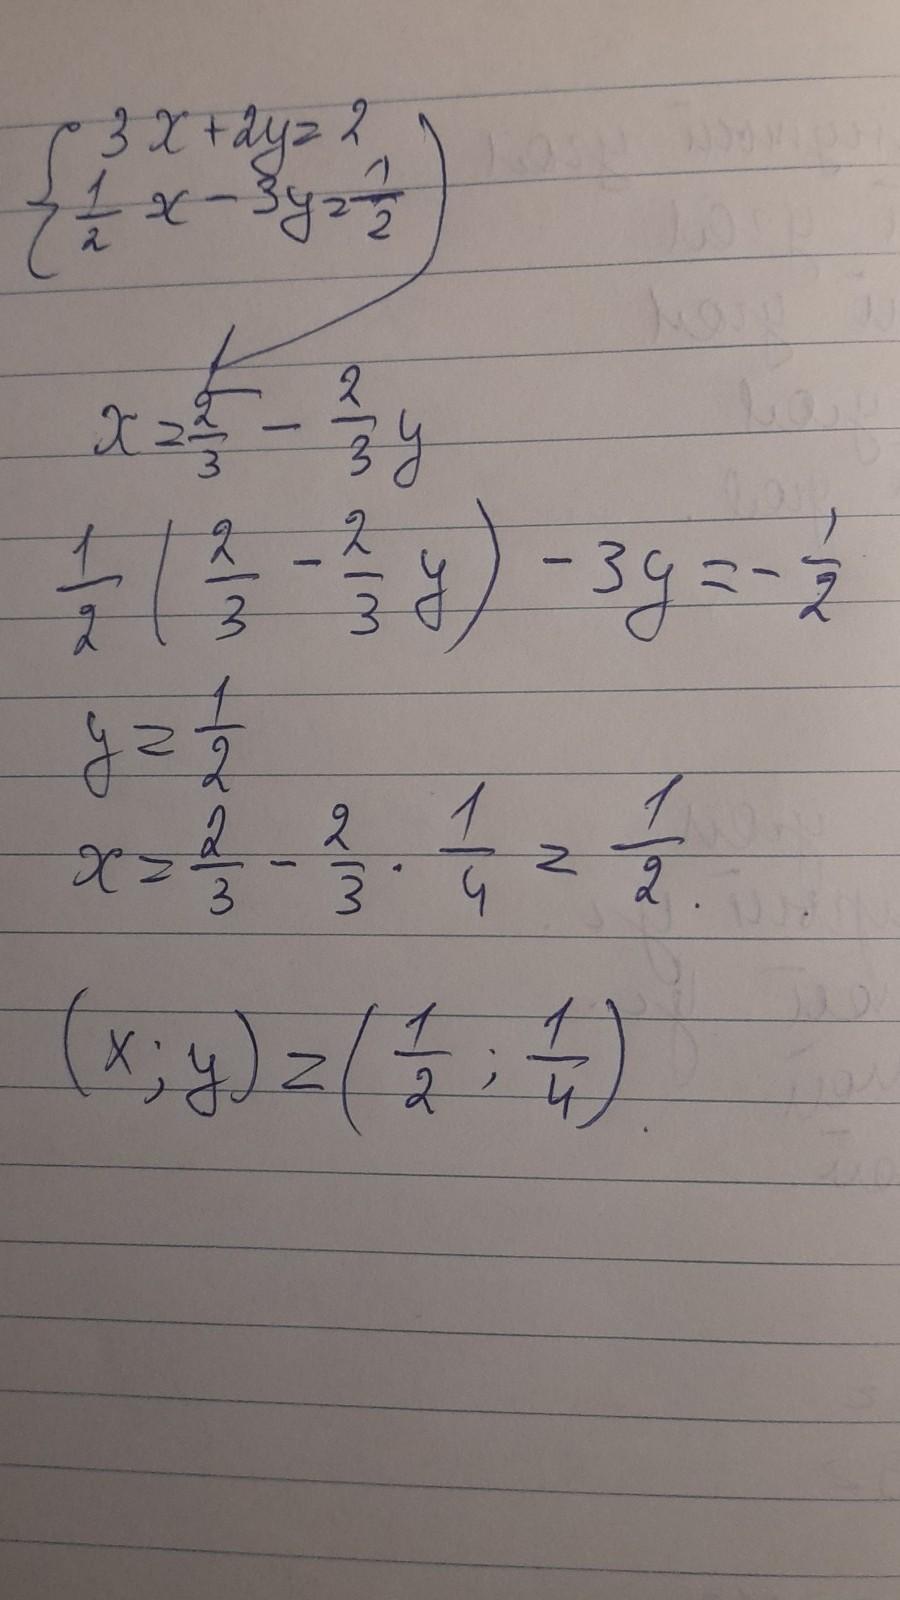 { 3x+2y=2
1/2 x - 3y=1/2
x=2/3 - 2/3 y
1/2 ( 2/3 - 2/3 y ) - 3y = - 1/2
y = 1/2
x = 2/3 - 2/3 · 1/4 = 1/2.
(x; y) = ( 1/2 ; 1/4 ).